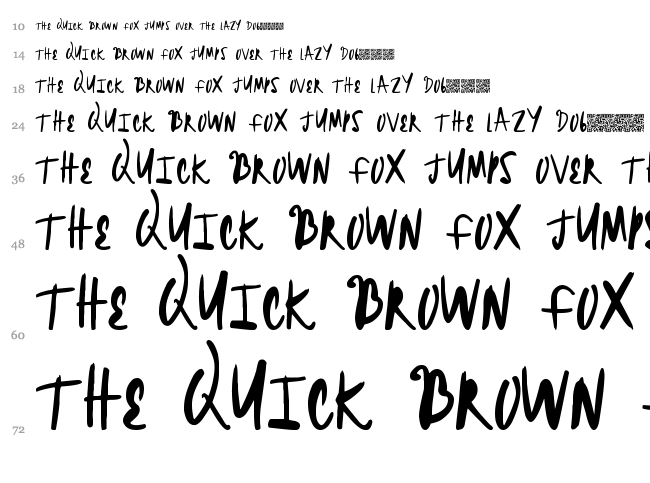 10 THE QUICK BROWN FOX JUMPS OVER THE LAZY DOG
14 THE QUICK BROWN FOX JUMPS OVER THE LAZY DOG
18 THE QUICK BROWN FOX JUMPS OVER THE LAZY DOG
24 THE QUICK BROWN FOX JUMPS OVER THE LAZY DOG
36 THE QUICK BROWN FOX JUMPS OVER TH
48 THE QUICK BROWN FOX JUMPS
60 THE QUICK BROWN FOX
72 THE QUICK BROWN